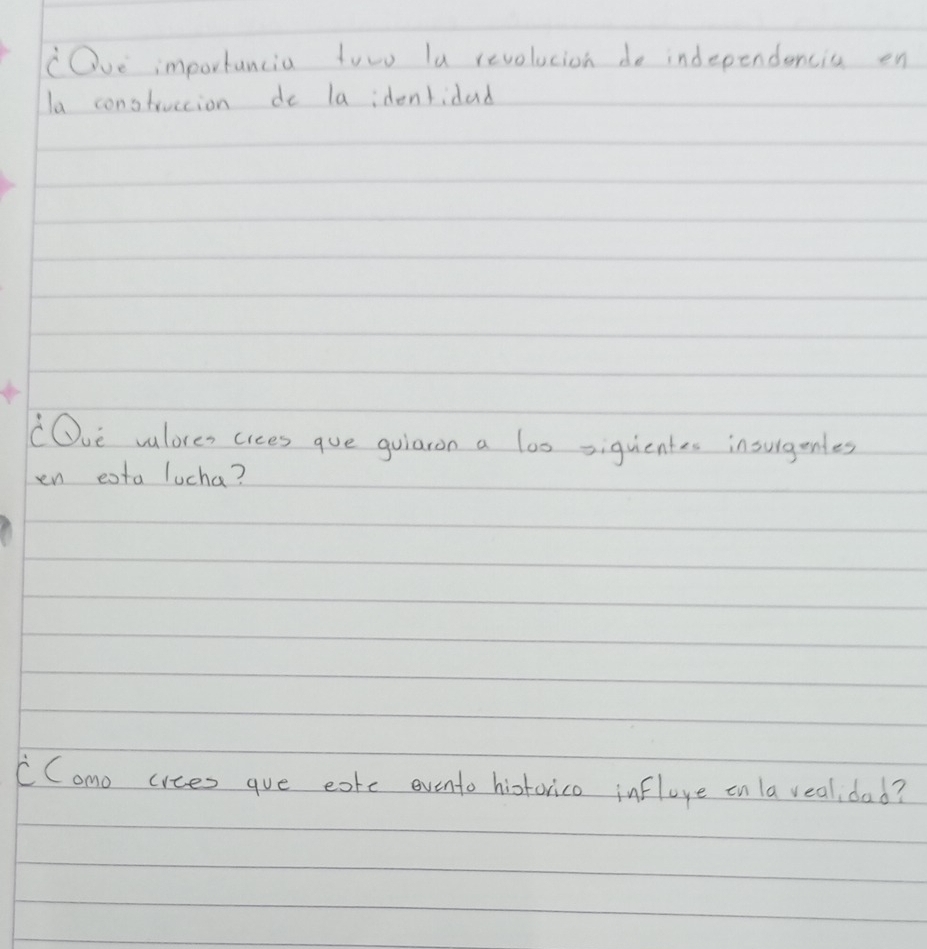 ¿Qué importancia tuvo la revolucion de independencia en
la construccion de la identidad
¿Qué valores crees que guiaron a los siguientes insurgentes
en esta lucha?
¿Como crees que este evento historico influye en la realidad?